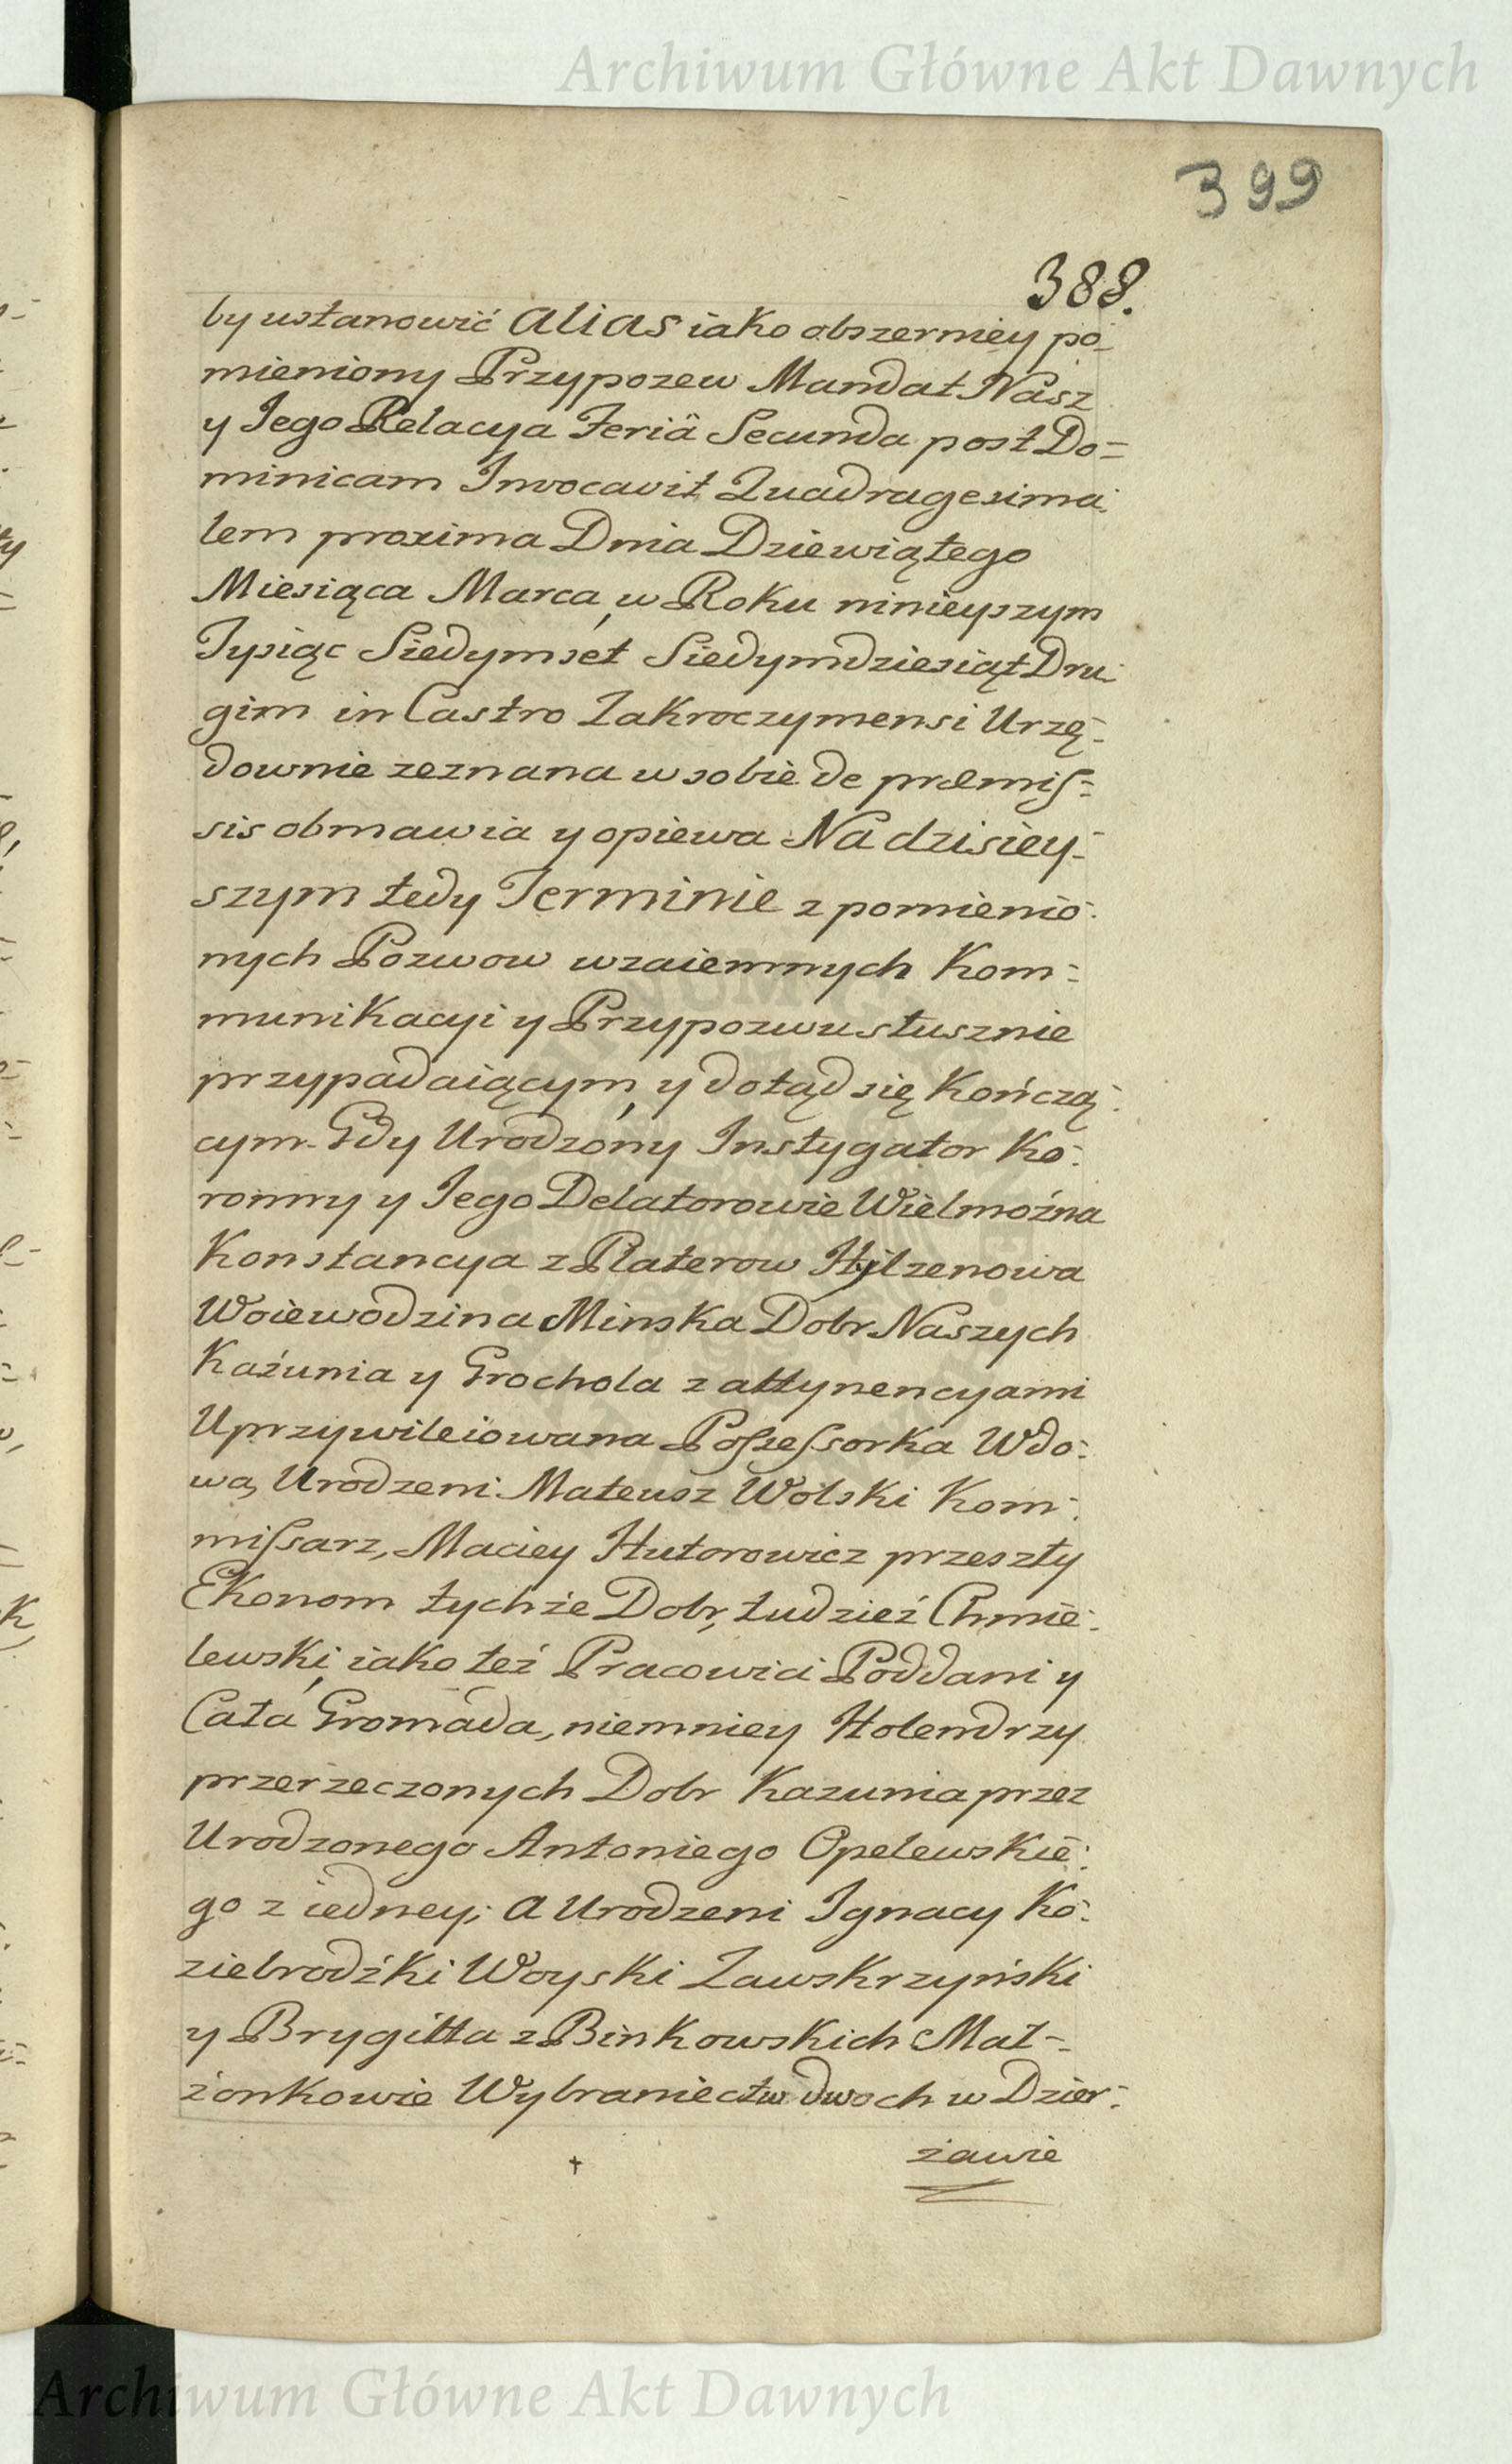 Archiwum Główne Akt Dawnych
399
388.
by ustanowić alias iako obszerniey po-
mieniony Przypozew Mandat Nasz
y Jego Relacya Feriä Secunda post Do=
minicam Invocavit Quadragesima-
lem proxima Dnia Dziewiątego
Miesiąca Marca, w Roku ninieyszym
Tysiąc Siedymset Siedymdziesiąt Dru-
gim in Castro Zakroczymensi Urzę-
downie zeznana w sobie de præmis=
sis obmawia y opiewa Na dzisiey-
szym tedy Terminie z pomienio-
nych Pozwow wzaiemnych Kom=
munikacyi y Przypozwu słusznie
przypadaiącym, y dotąd się Kończą-
cym. Gdy Urodzony Instygator Ko-
ronny y Jego Delatorowie Wielmożna
Konstancya z Platerow Hylzenowa
Woiewodzina Minska Dobr Naszych
Kaźunia y Grochola z attynencyami
Uprzywileiowana Possessorka Wdo-
wa, Urodzeni Mateusz Wolski Kom-
missarz, Maciey Hutorowicz przeszły
Ekonom tychże Dobr, tudzież Chmie-
lewski, iako też Pracowici Poddani y
Cała Gromada, niemniey Holendrzy
przerzeczonych Dobr Kazunia przez
Urodzonego Antoniego Opelewskie-
go z iedney; a Urodzeni Ignacy Ko-
ziebrodźki Woyski Zawskrzyński
y Brygitta z Binkowskich Mał-
żonkowie Wybraniectw dwoch w Dzier-
żawie
Archiwum Główne Akt Dawnych